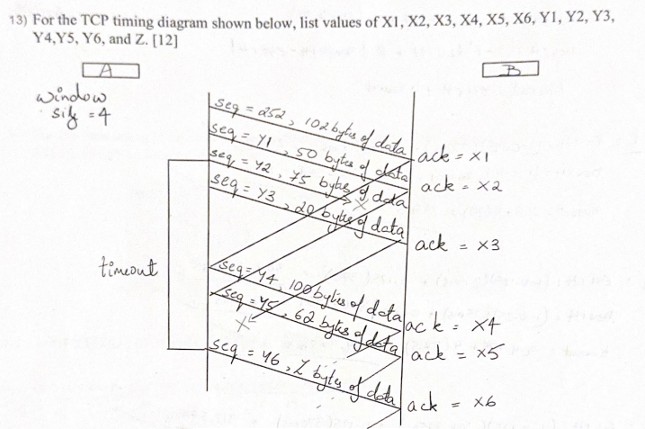 13) For the TCP timing diagram shown below, list values of X1, X2, X3, X4, X5, X6, Y1, Y2, Y3,
Y4,Y5, Y6, and Z. [12]
A
B
window
size = 4
seq = 252, 102 bytes of data
ack = X1
seq = Y1, 50 bytes of data
ack = X2
seq = Y2, 45 bytes of data
seq = Y3, 20 bytes of data
ack = X3
timeout
seq = Y4, 100 bytes of data
ack = X4
seq = Y5, 62 bytes of data
ack = X5
seq = Y6, Z bytes of data
ack = X6